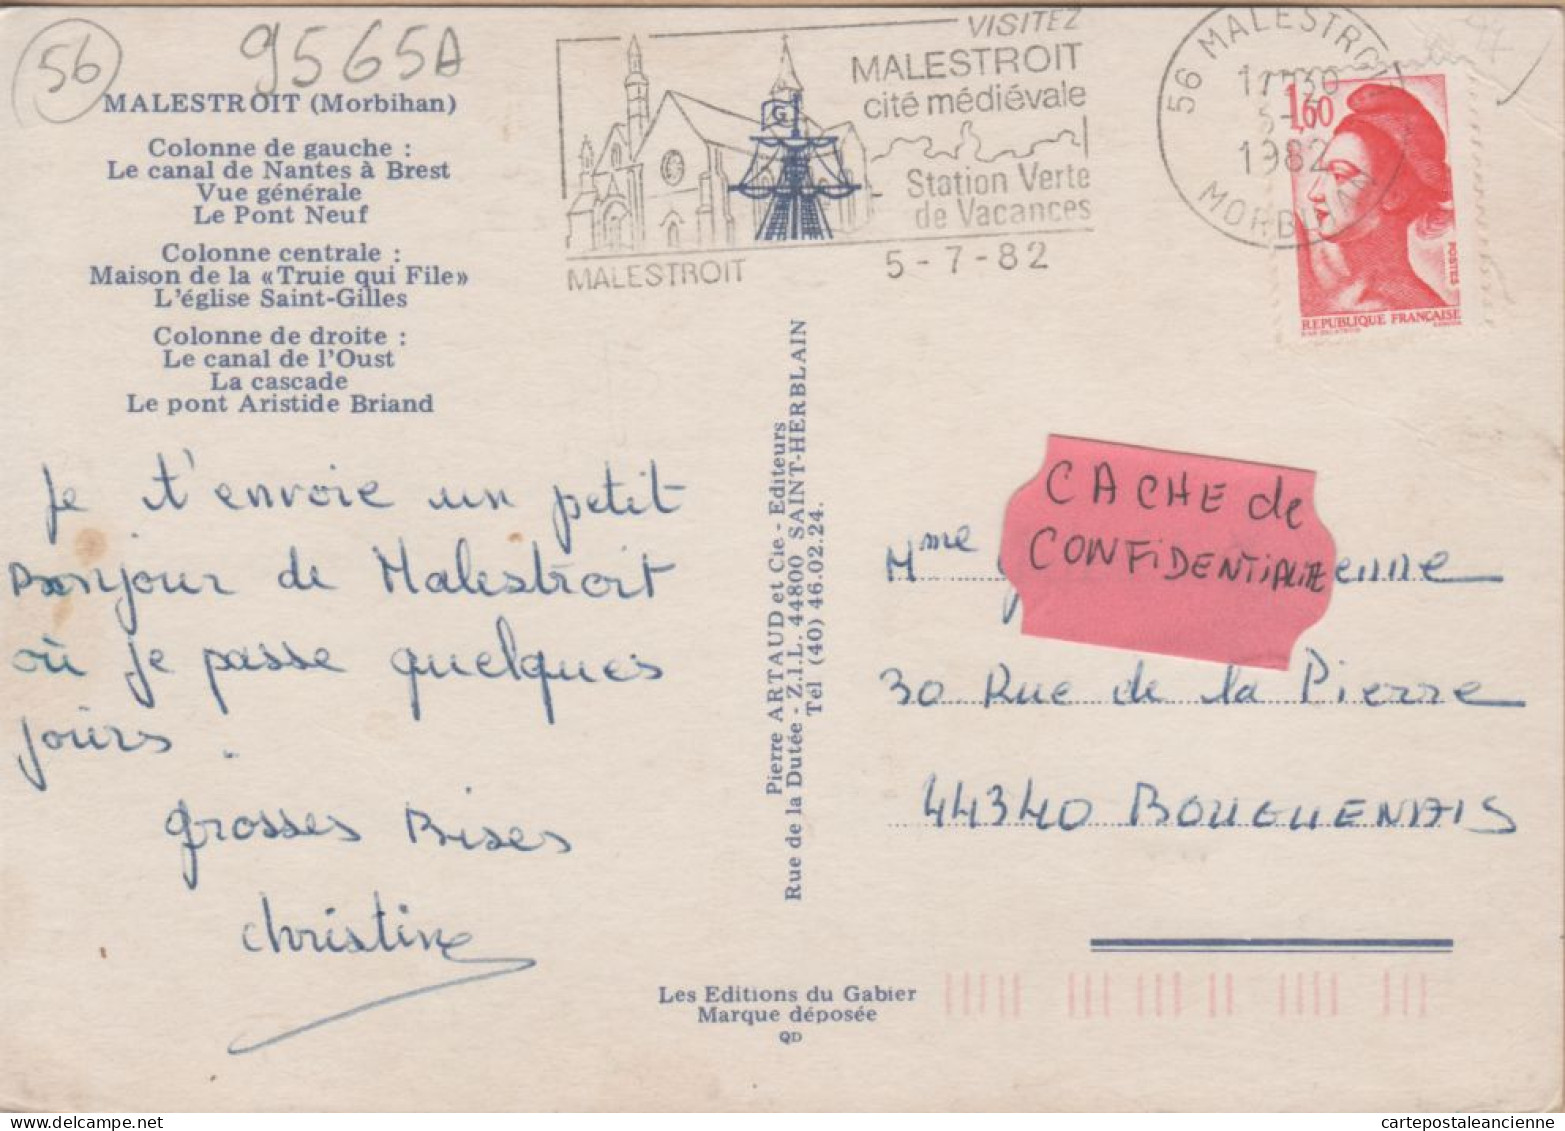 56
9565A
MALESTROIT (Morbihan)
Colonne de gauche :
Le canal de Nantes à Brest
Vue générale
Le Pont Neuf
Colonne centrale :
Maison de la «Truie qui File»
L'église Saint-Gilles
Colonne de droite :
Le canal de l'Oust
La cascade
Le pont Aristide Briand
Je t'envoie un petit
Bonjour de Malestroit
où je passe quelques
jours.
grosses Bises
christine
VISITEZ
MALESTROIT
cité médiévale
Station Verte
de Vacances
MALESTROIT
5-7-82
G
56 MALESTROIT
17H30
5-7
1982
MORBIHAN
1,60
POSTES
REPUBLIQUE FRANÇAISE
Pierre ARTAUD et Cie - Editeurs
Rue de la Dutée - Z.I.L. 44800 SAINT-HERBLAIN
Tél (40) 46.02.24.
CACHE de
CONFIDENTIALITE
Mme enne
30 Rue de la Pierre
44340 BOUGUENAIS
Les Editions du Gabier
Marque déposée
QD
cartepostaleancienne